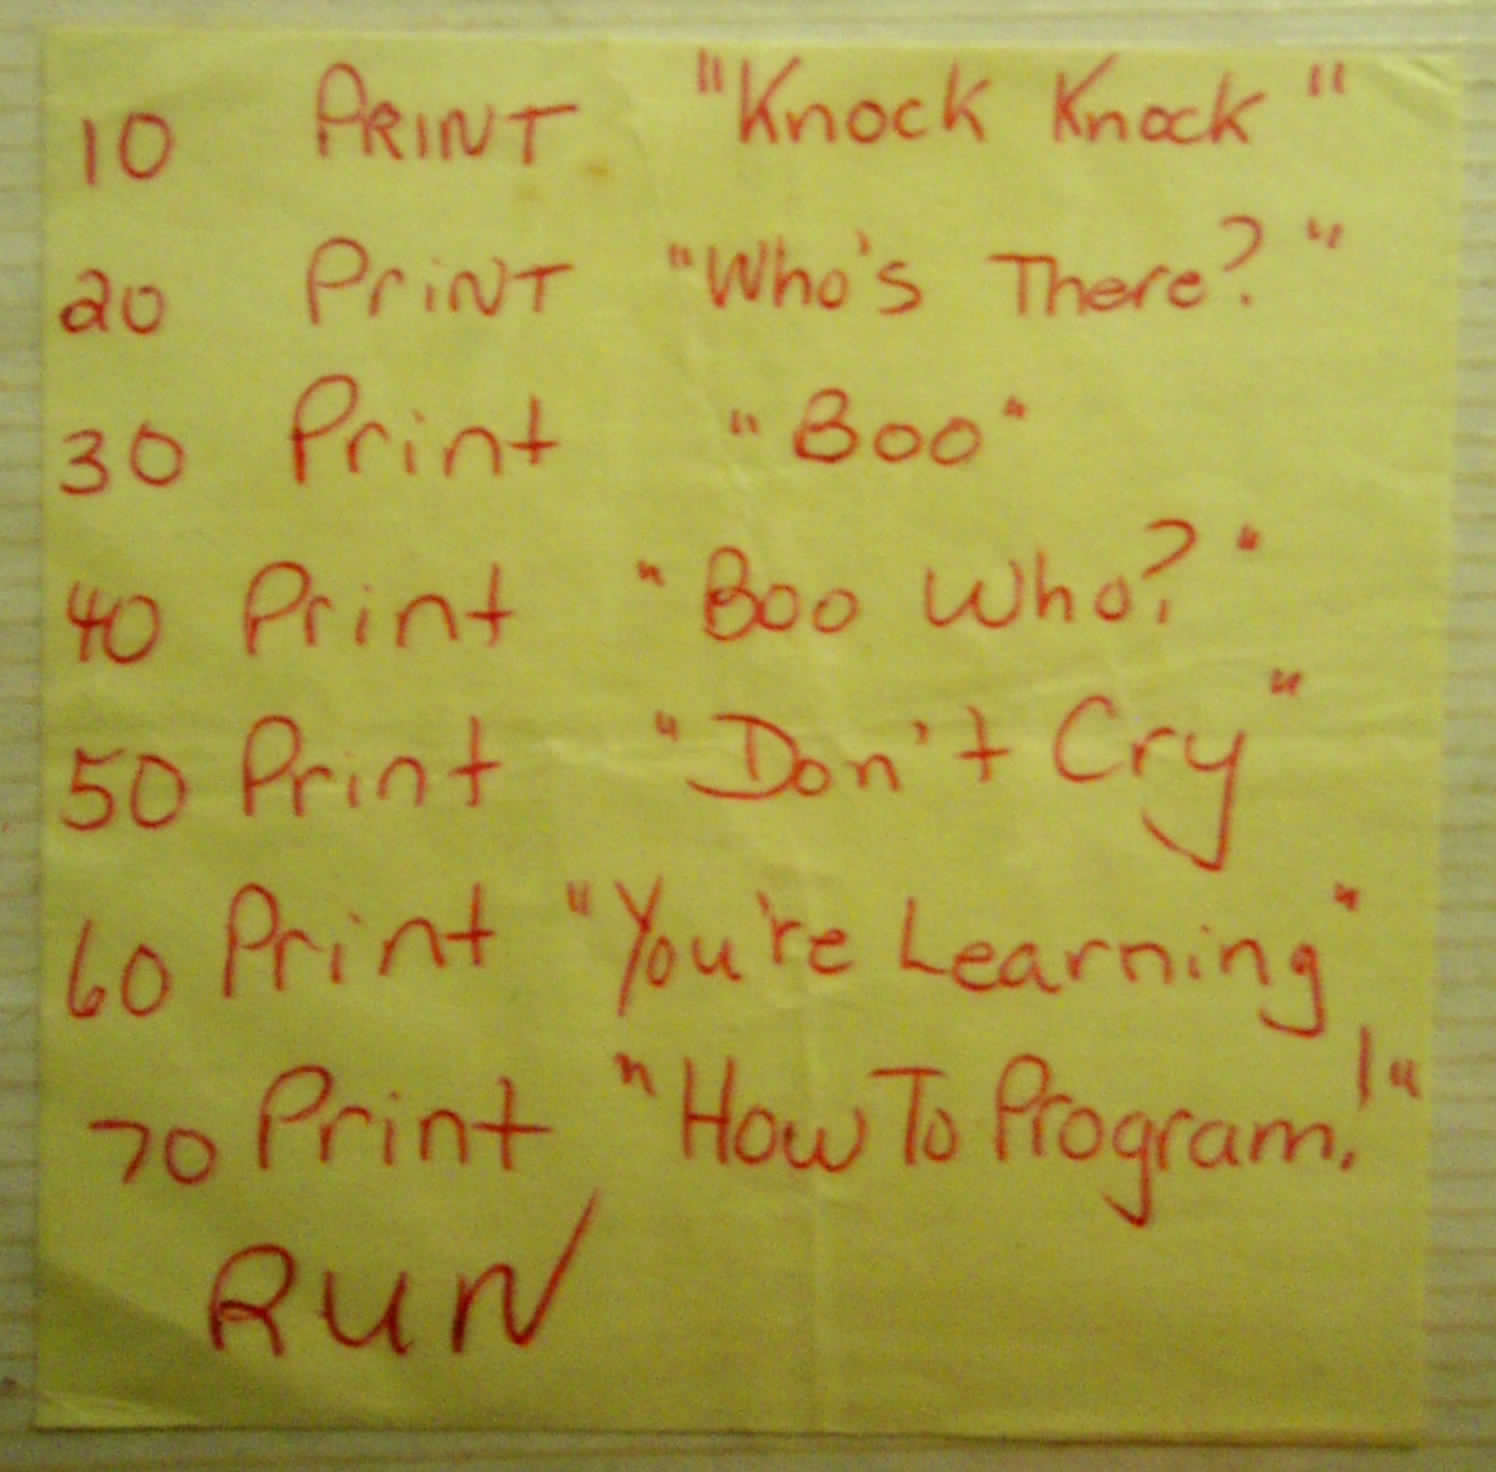 10 PRINT "Knock Knock"
20 PriNT "Who's There?"
30 Print "Boo"
40 Print "Boo Who?"
50 Print "Don't Cry"
60 Print "You're Learning"
70 Print "How To Program!"
RUN